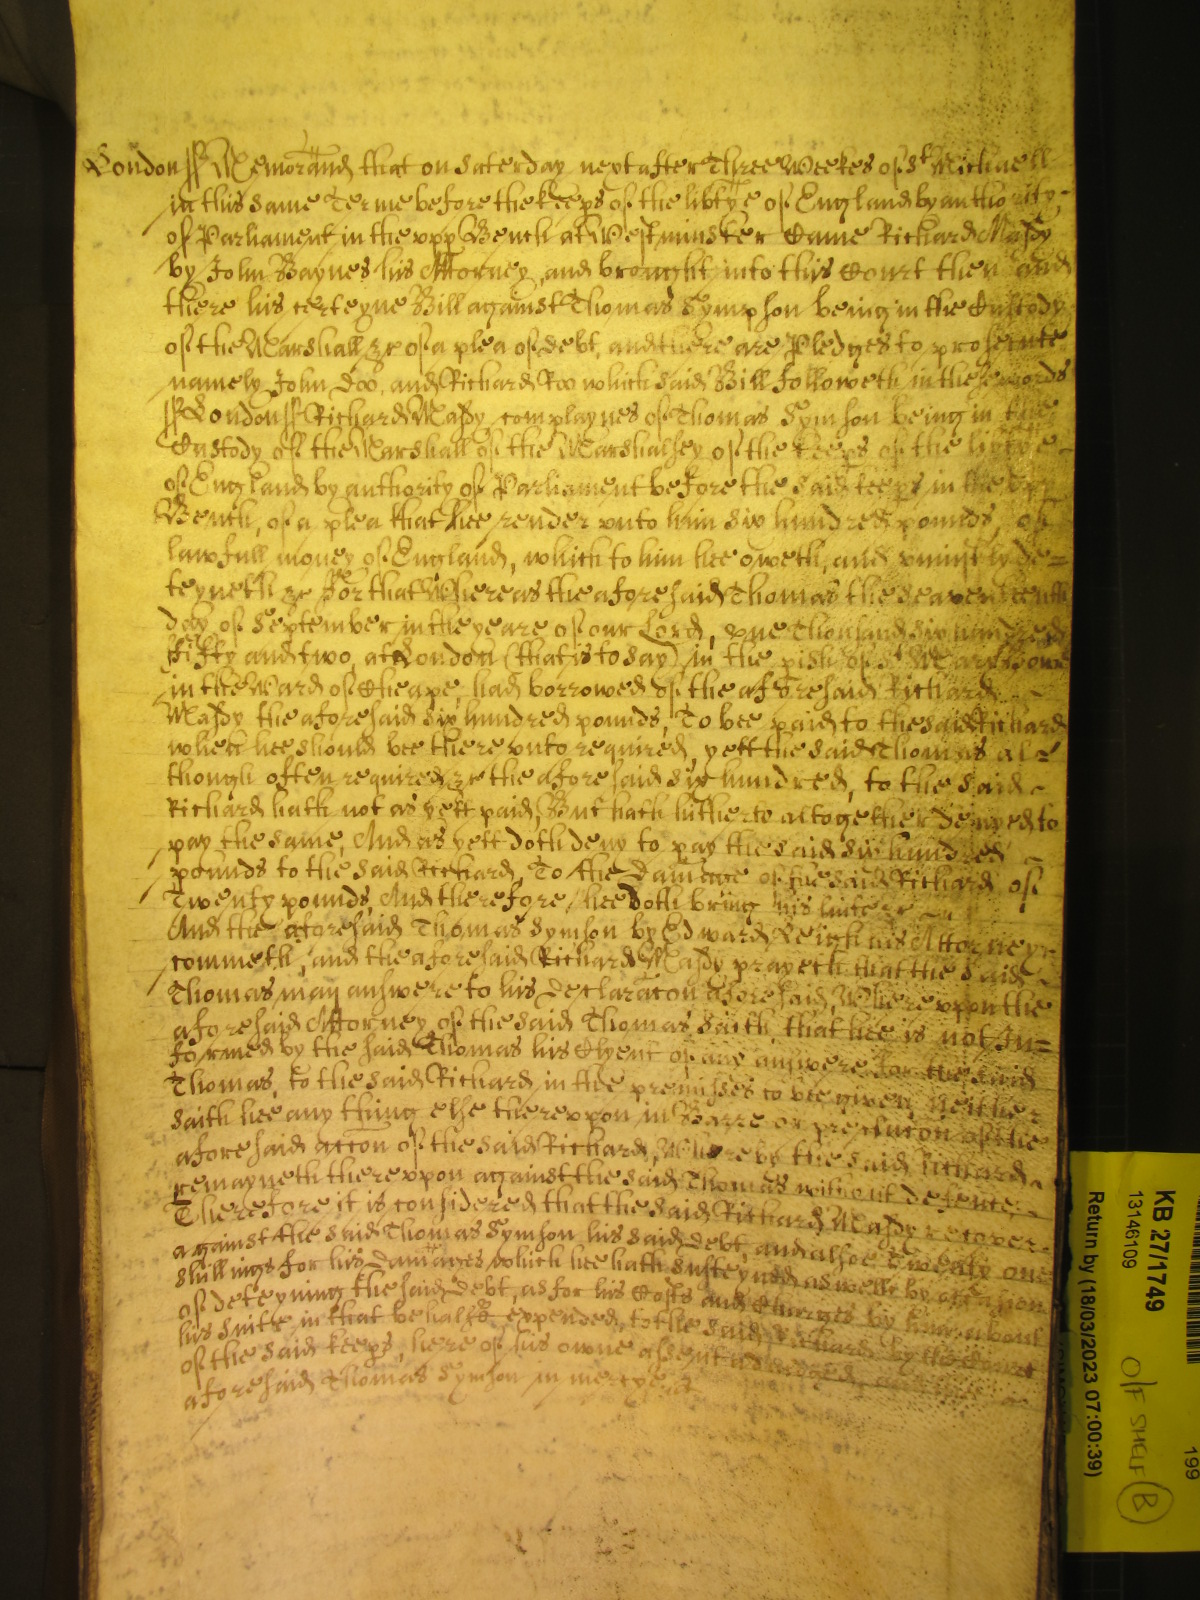 London ss Memorand that on Saterday next after Three Weekes of St Michaell
in this same Terme before the Keeps of the libtye of England by authority
of Parliament in the upp Bench at Westminster Came Richard Massy
by John Baynes his Attorney, and brought into this Court then and
there his certeyne Bill against Thomas Sympson being in the Custody
of the Marshall &c of a plea of debt, and there are Pledges to prosecute
namely John Doo, and Richard Roo which said Bill followeth in these words
ss London ss Richard Massy complaynes of Thomas Symson being in the
Custody of the Marshall of the Marshalsey of the Keeps of the libtye
of England by authority of Parliament before the said keeps in the upp
Bench, of a plea that hee render unto him six hundred pounds, of
lawfull money of England, which to him hee oweth, and uniustly de=
teyneth &c For that Whereas the aforesaid Thomas the Seaventeenth
day of September in the yeare of our Lord, one Thousand six hundred
Fifty and two, at London (that is to say) in the pish of St Mary Bowe
in the Ward of Cheape, had borrowed of the aforesaid Richard
Massy the aforesaid six hundred pounds, To bee paid to the said Richard
when hee should bee there unto required, yett the said Thomas al=
though often required &c the aforesaid six hundred, to the said
Richard hath not as yett paid, But hath hitherto altogether denyed to
pay the same, And as yett doth deny to pay the said six hundred
pounds to the said Richard, To the Damage of the said Richard of
Twenty pounds, And therefore hee doth bring his suite &c
And the aforesaid Thomas Symson by Edward Leigh his Attorney
commeth, and the aforesaid Richard Massy prayeth that the said
Thomas may answere to his Declaracon aforesaid, Whereuppon the
aforesaid Attorney of the said Thomas saith, that hee is not In=
formed by the said Thomas his Clyent of any answere for the said
Thomas, to the said Richard in the premisses to bee given, Neither
saith hee any thing else thereupon in Barre or preclucon of the
aforesaid accon of the said Richard, Whereby the said Richard
remayneth thereupon against the said Thomas without defence,
Therefore it is considered that the said Richard Massy recover
against the said Thomas Symson his said debt, and alsoe Twenty one
shillings for his Damages which hee hath susteyned aswell by occasion
of deteyning the said debt, as for his Costs and Charges by him about
his suite in that behalfe expended, to the said Richard by the Court
of the said keeps here of his owne assent adiudged,
aforesaid Thomas Symson in mercy &c
KB 27/1749
13146109
Return by (18/03/2023 07:00:39)
O/F SHELF B
199